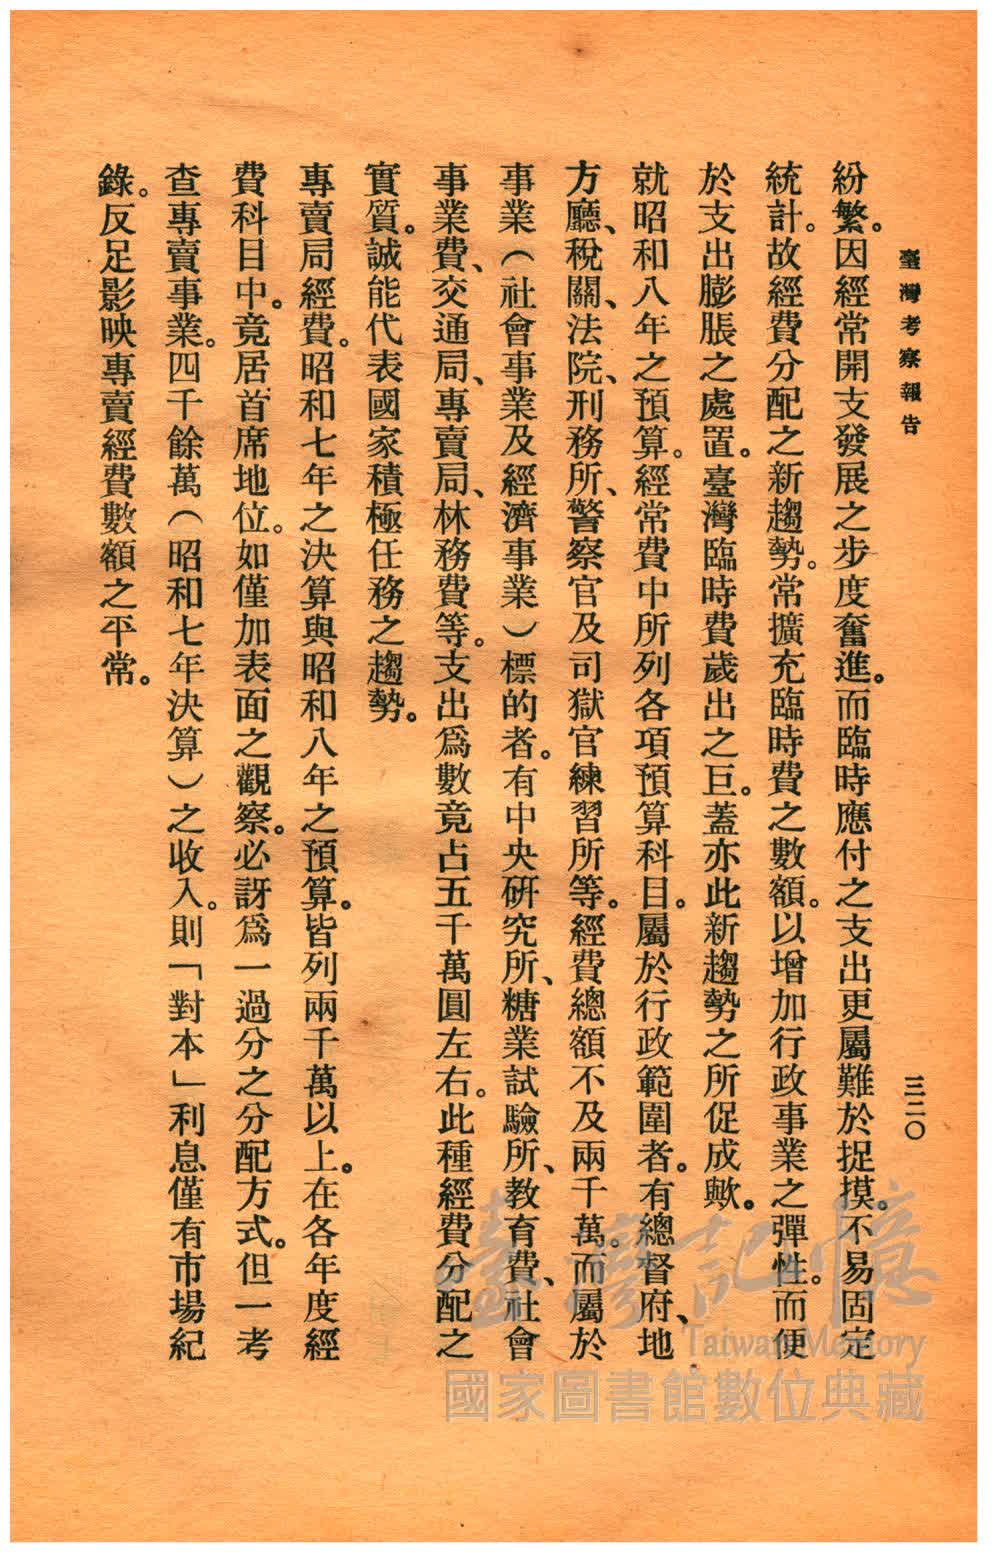 臺灣考察報告
三二〇
紛繁。因經常開支發展之步度奮進。而臨時應付之支出更屬難於捉摸。不易固定
統計。故經費分配之新趨勢。常擴充臨時費之數額。以增加行政事業之彈性。而便
於支出膨脹之處置。臺灣臨時費歲出之巨。蓋亦此新趨勢之所促成歟。
就昭和八年之預算。經常費中所列各項預算科目。屬於行政範圍者。有總督府、地
方廳、稅關、法院、刑務所、警察官及司獄官練習所等。經費總額不及兩千萬。而屬於
事業（社會事業及經濟事業）標的者。有中央研究所、糖業試驗所、教育費、社會
事業費、交通局、專賣局、林務費等。支出爲數竟占五千萬圓左右。此種經費分配之
實質。誠能代表國家積極任務之趨勢。
專賣局經費。昭和七年之決算與昭和八年之預算。皆列兩千萬以上。在各年度經
費科目中。竟居首席地位。如僅加表面之觀察。必訝爲一過分之分配方式。但一考
查專賣事業。四千餘萬（昭和七年決算）之收入。則「對本」利息僅有市場紀
錄。反足影映專賣經費數額之平常。
臺灣記憶
Taiwan Memory
國家圖書館數位典藏